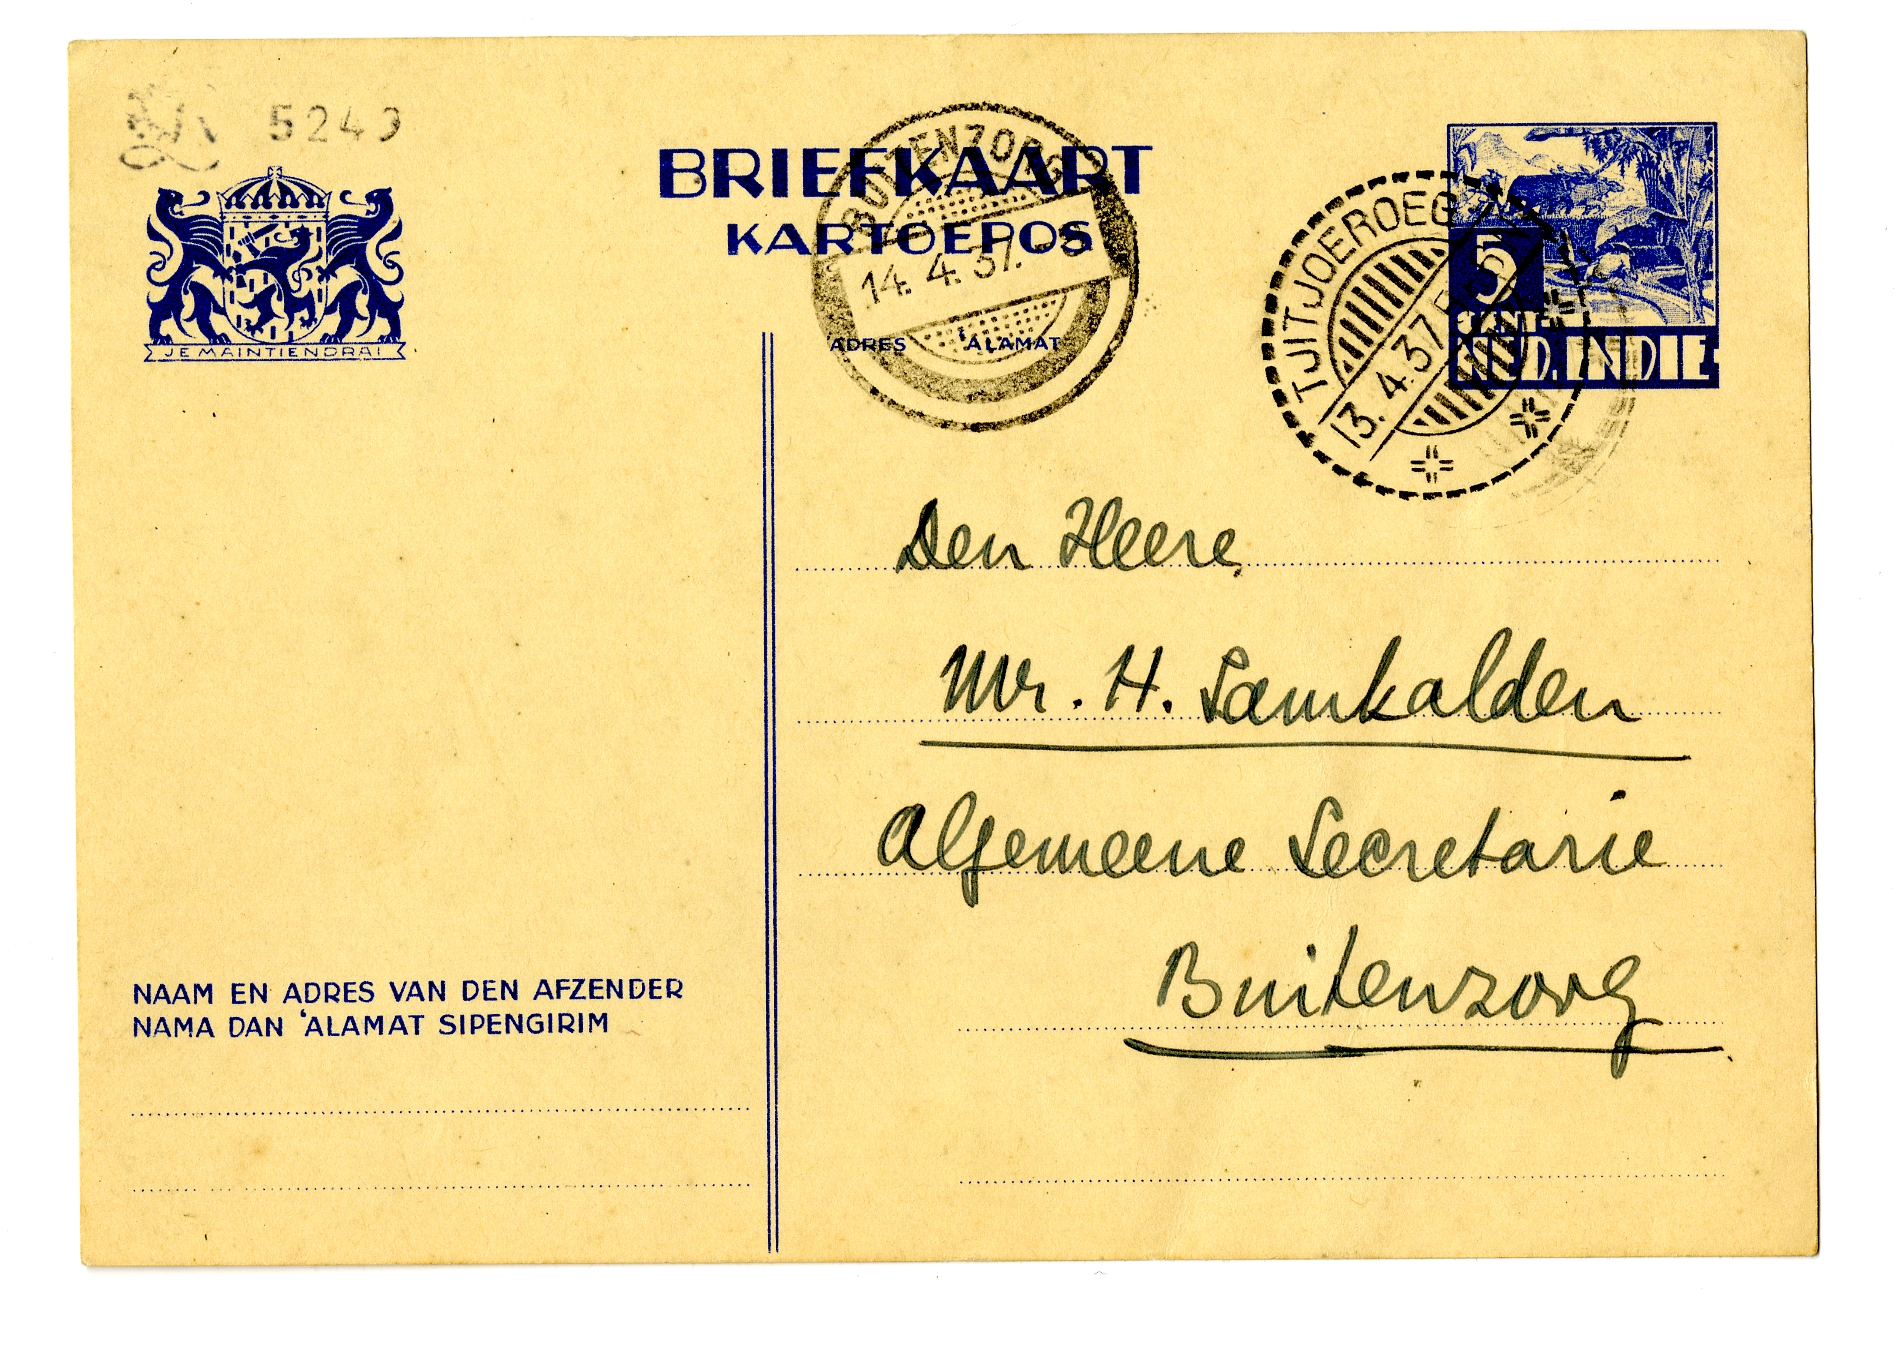 5243
BRIEFKAART
KARTOEPOS
BUITENZORG
14. 4. 37.
ADRES 'ALAMAT
JE MAINTIENDRAI
TJITJOEROEG
13. 4. 37
5
CENT
NED. INDIE
Den Heere
Mr. H. Samkalden
Algemeene Secretarie
Buitenzorg
NAAM EN ADRES VAN DEN AFZENDER
NAMA DAN 'ALAMAT SIPENGIRIM